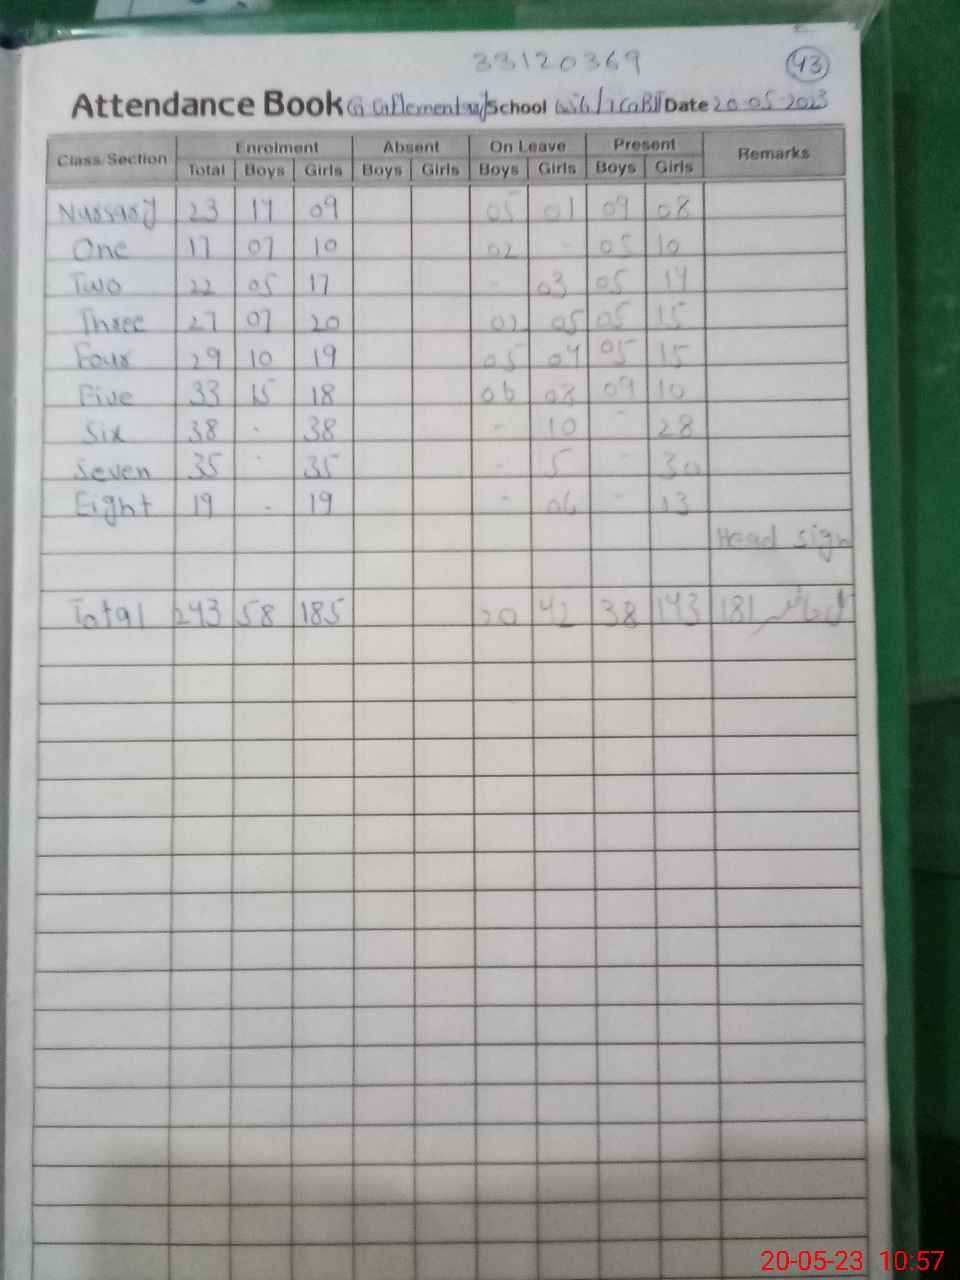 33120369
43
Attendance Book G.G. Elementary School Date 20-05-2023
Class/Section Enrolment Absent On Leave Present Remarks
Total Boys Girls Boys Girls Boys Girls Boys Girls
Nursary 23 14 09 05 01 09 08
One 17 07 10 02 - 05 10
Two 22 05 17 - 03 05 14
Three 27 07 20 02 05 05 15
Four 29 10 19 05 04 05 15
Five 33 15 18 06 08 09 10
Six 38 - 38 - 10 - 28
Seven 35 - 35 - 5 - 30
Eight 19 - 19 - 06 - 13
Head sign
Total 243 58 185 20 42 38 143 181
20-05-23 10:57